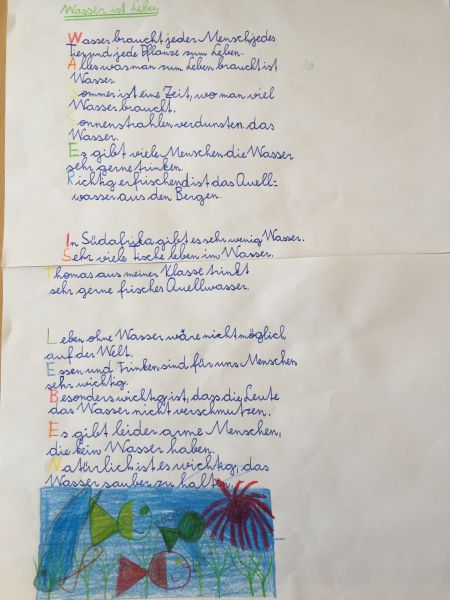 Wasser ist Leben
Wasser braucht jeder Mensch, jedes
Tier und jede Pflanze zum Leben.
Alles was man zum Leben braucht ist
Wasser.
Sommer ist eine Zeit, wo man viel
Wasser braucht.
Sonnenstrahlen verdunsten das
Wasser.
Es gibt viele Menschen die Wasser
sehr gerne trinken.
Richtig erfrischend ist das Quell-
wasser aus den Bergen.
In Südafrika gibt es sehr wenig Wasser.
Sehr viele Fische leben im Wasser.
Thomas aus meiner Klasse trinkt
sehr gerne frisches Quellwasser.
Leben ohne Wasser wäre nicht möglich
auf der Welt.
Essen und Trinken sind für uns Menschen
sehr wichtig.
Besonders wichtig ist, dass die Leute
das Wasser nicht verschmutzen.
Es gibt leider arme Menschen,
die kein Wasser haben.
Natürlich ist es wichtig, das
Wasser sauber zu halten.